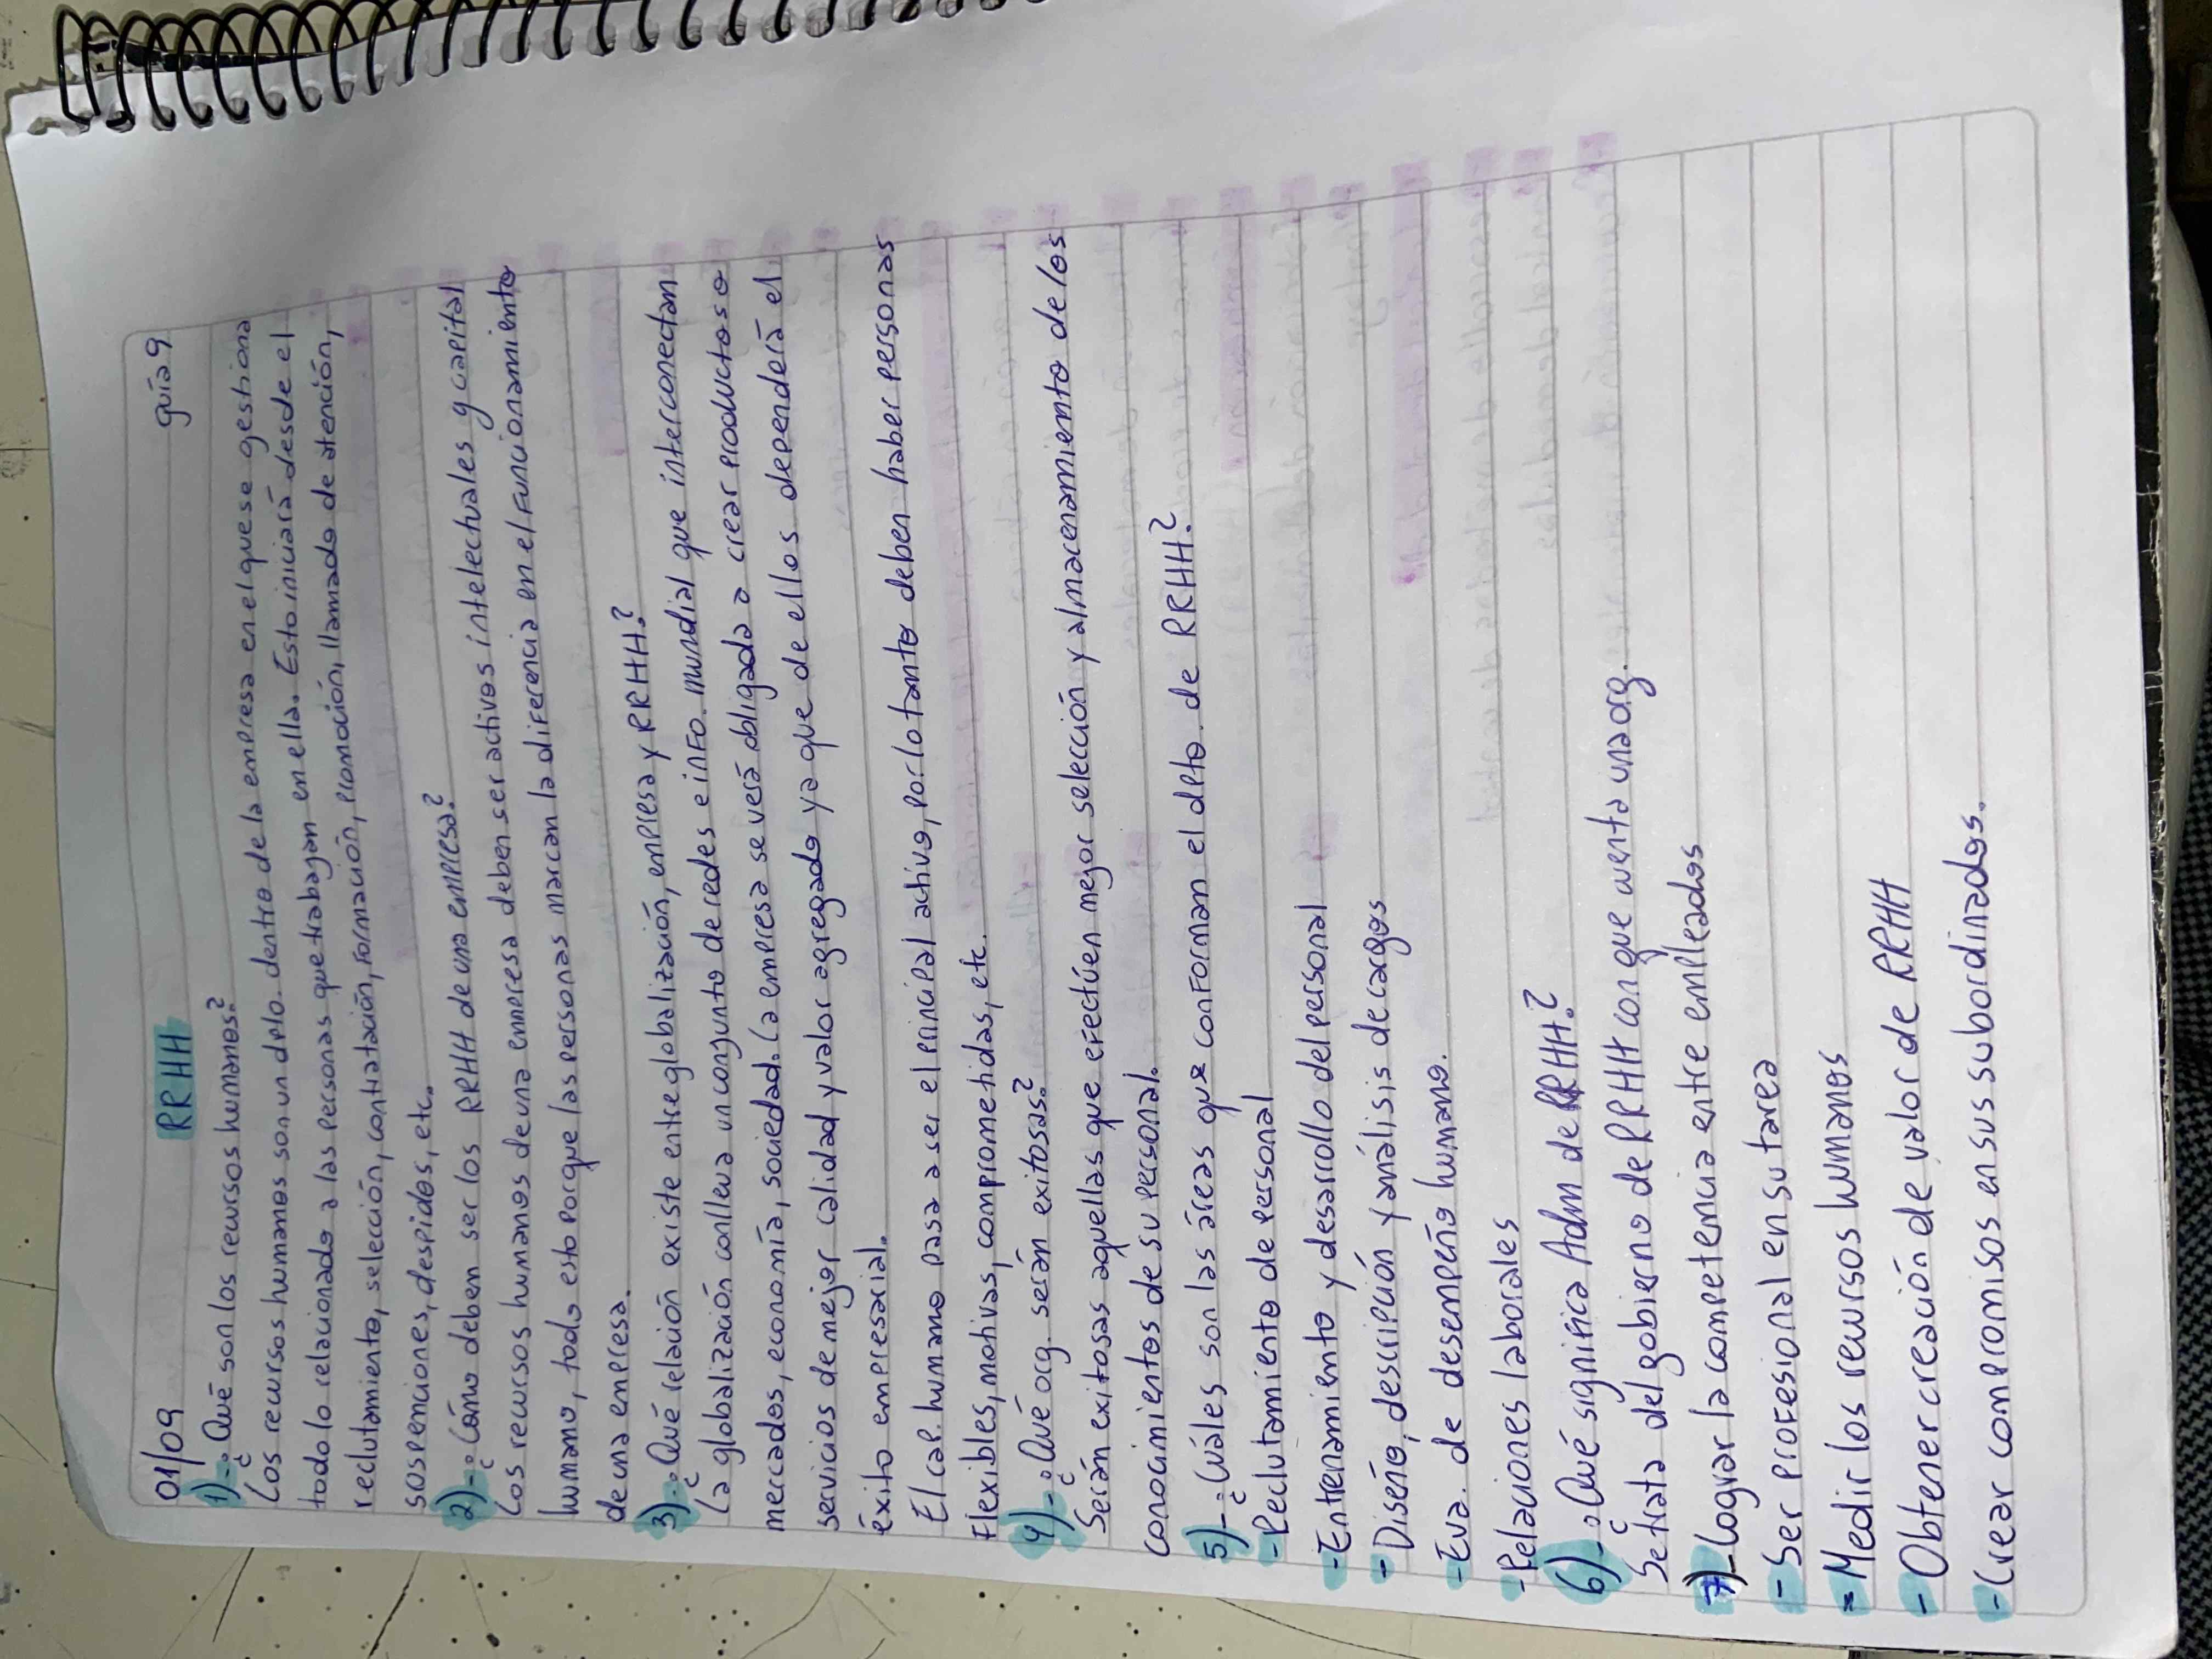 01/09 RRHH guía 9
1)-¿Qué son los recursos humanos?
Los recursos humanos son un dpto. dentro de la empresa en el que se gestiona
todo lo relacionado a las personas que trabajan en ella. Esto iniciará desde el
reclutamiento, selección, contratación, formación, promoción, llamado de atención,
sospenciones, despidos, etc.
2)-¿Cómo deben ser los RRHH de una empresa?
Los recursos humanos de una empresa deben ser activos intelectuales y capital
humano, todo esto porque las personas marcan la diferencia en el funcionamiento
de una empresa.
3)-¿Qué relación existe entre globalización, empresa y RRHH?
La globalización conlleva un conjunto de redes e info. mundial que interconectan
mercados, economía, sociedad. La empresa se verá obligada a crear productos o
servicios de mejor calidad y valor agregado ya que de ellos dependerá el
éxito empresarial.
El cap. humano pasa a ser el principal activo, por lo tanto deben haber personas
flexibles, motivas, comprometidas, etc.
4)-¿Qué org. serán exitosas?
Serán exitosas aquellas que efectúen mejor selección y almacenamiento de los
conocimientos de su personal.
5)-¿Cuáles son las áreas que conforman el dpto. de RRHH?
-Reclutamiento de personal
-Entrenamiento y desarrollo del personal
-Diseño, descripción y análisis de cargos
-Eva. de desempeño humano.
-Relaciones laborales
6)-¿Qué significa Adm de RRHH?
Se trata del gobierno de RRHH con que cuenta una org.
7)-Lograr la competencia entre empleados
- Ser profesional en su tarea
- Medir los recursos humanos
- Obtener creación de valor de RRHH
-Crear compromisos en sus subordinados.